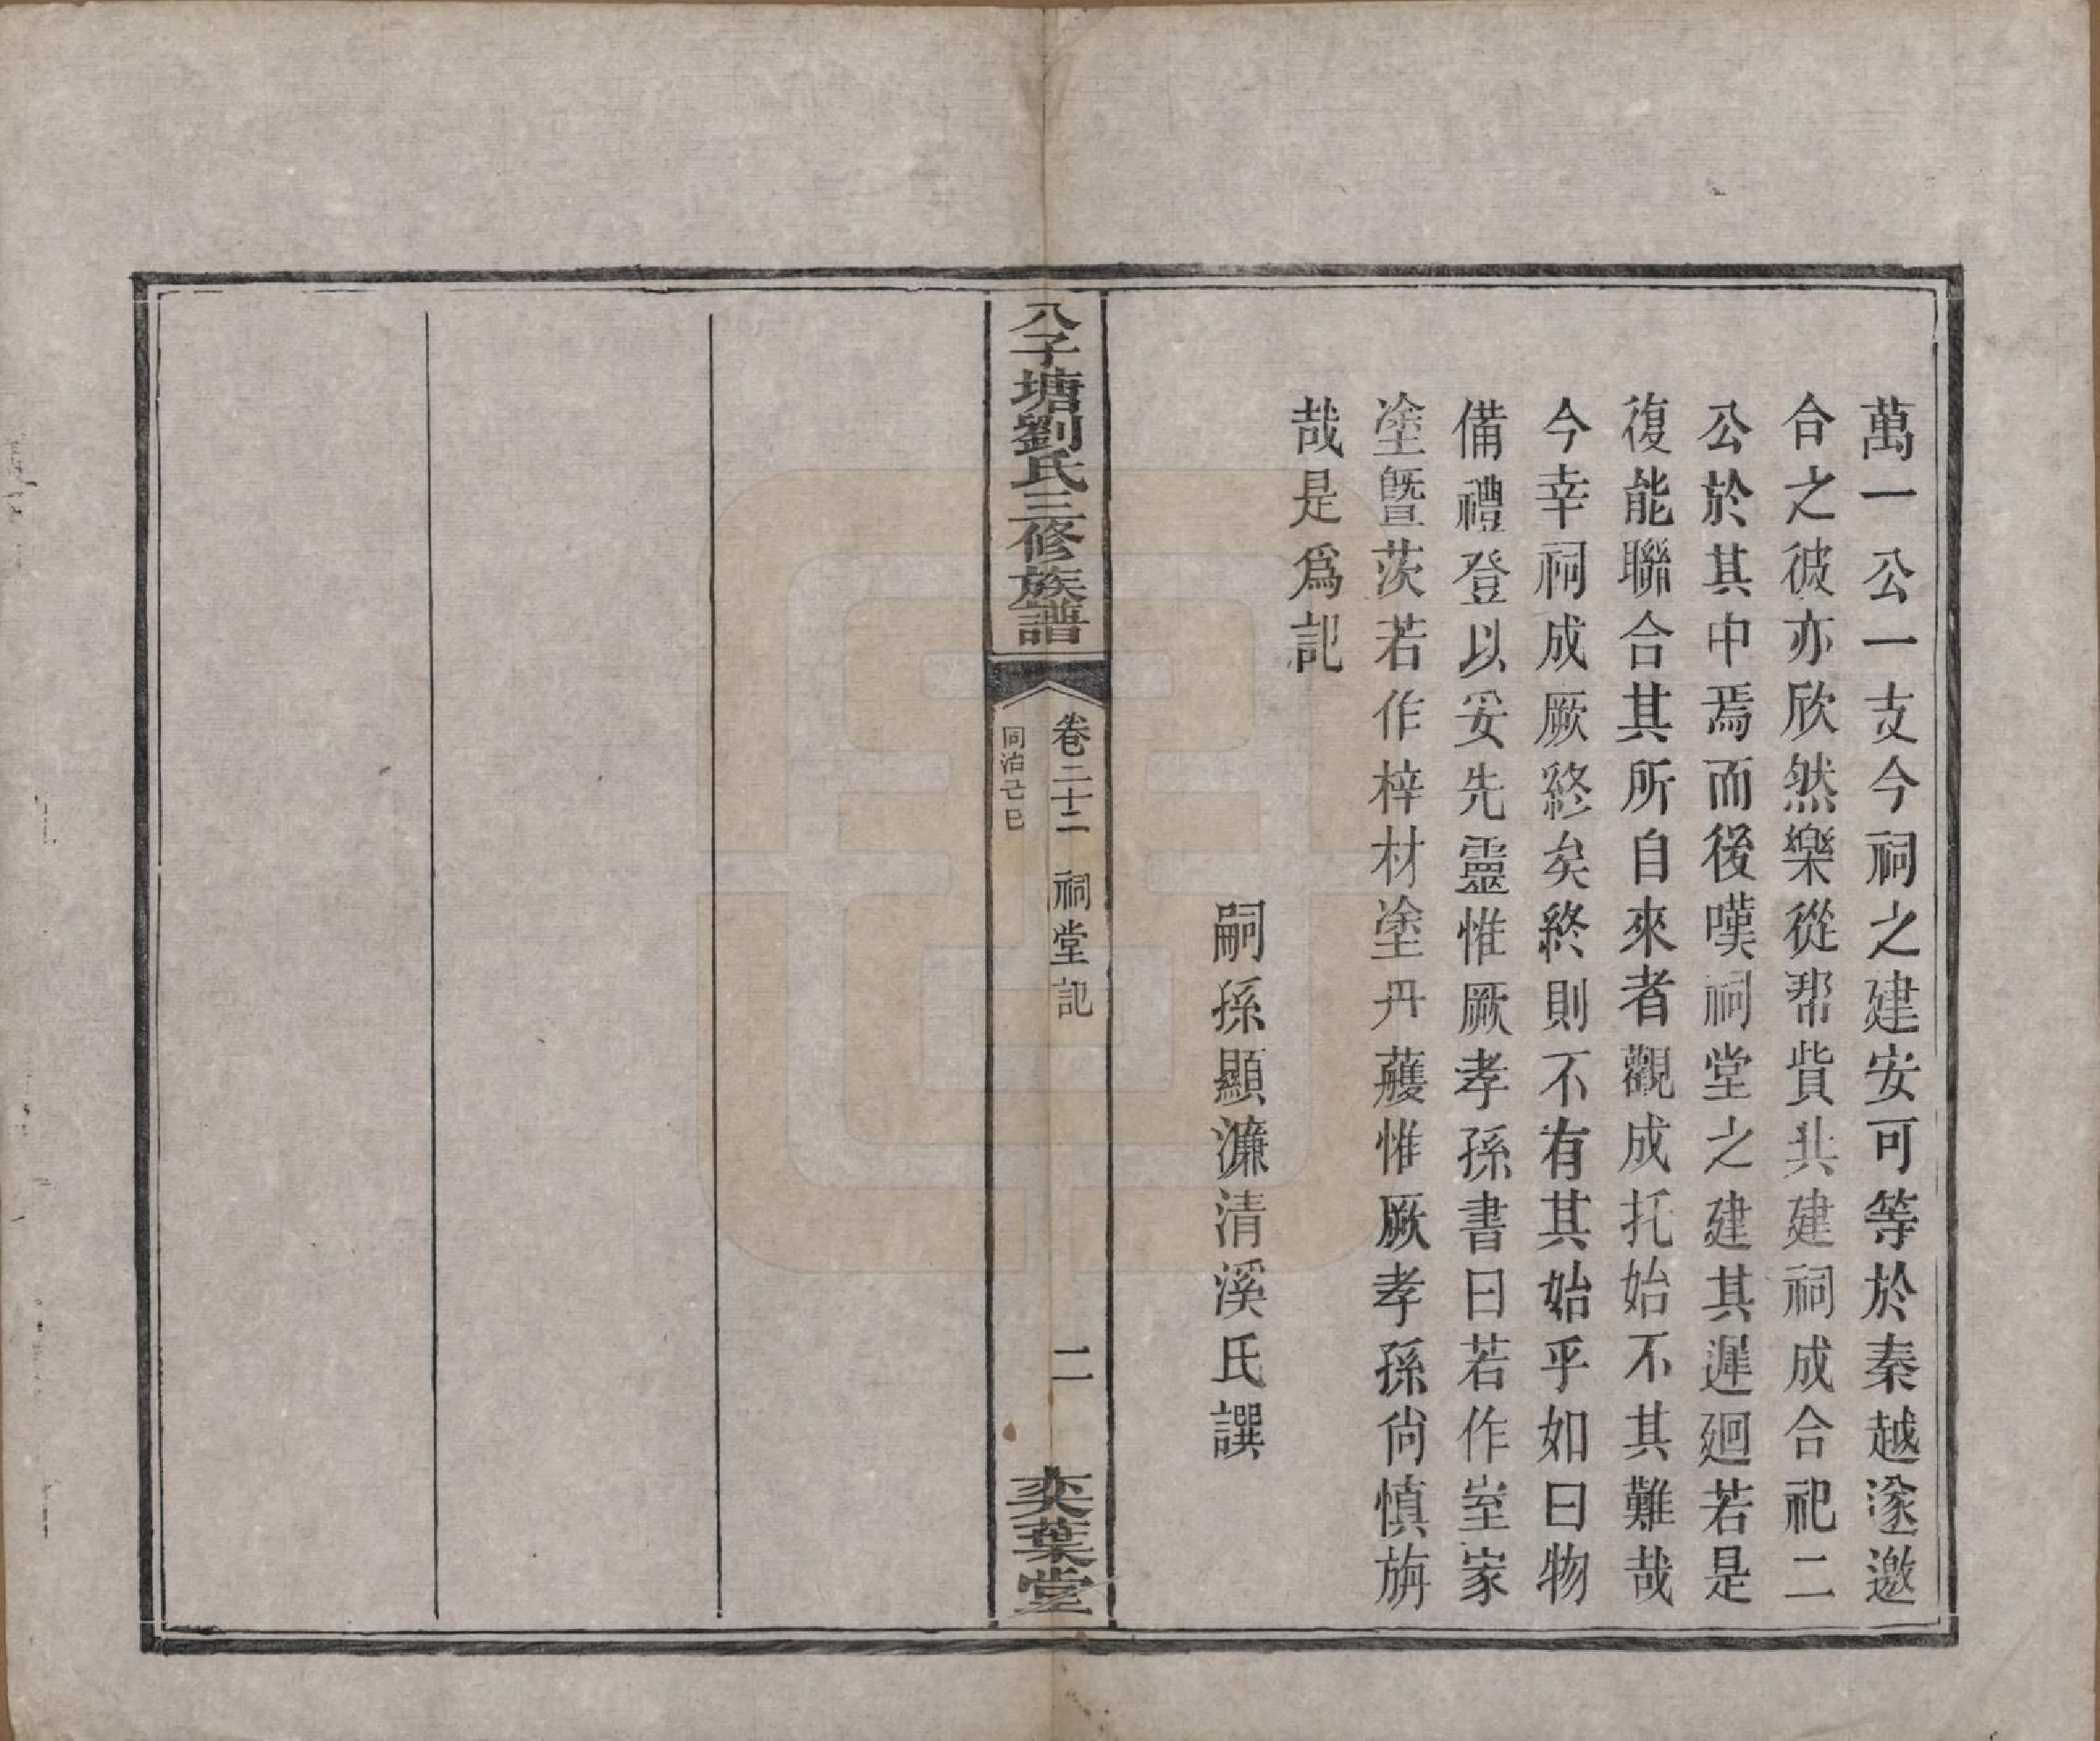 萬一公一支今祠之建安可等於秦越遂邀
合之彼亦欣然樂從帮貲共建祠成合祀二
公於其中焉而後嘆祠堂之建其遲廻若是
復能聯合其所自來者觀成托始不其難哉
今幸祠成厥終矣終則不有其始乎如曰物
備禮登以妥先靈惟厥孝孫書曰若作室家
塗暨茨若作梓材塗丹雘惟厥孝孫尙慎旃
哉是爲記
嗣孫顯濂清溪氏譔
八子塘劉氏三修族譜
卷二十二 祠堂記
同治己巳
二
奕葉堂